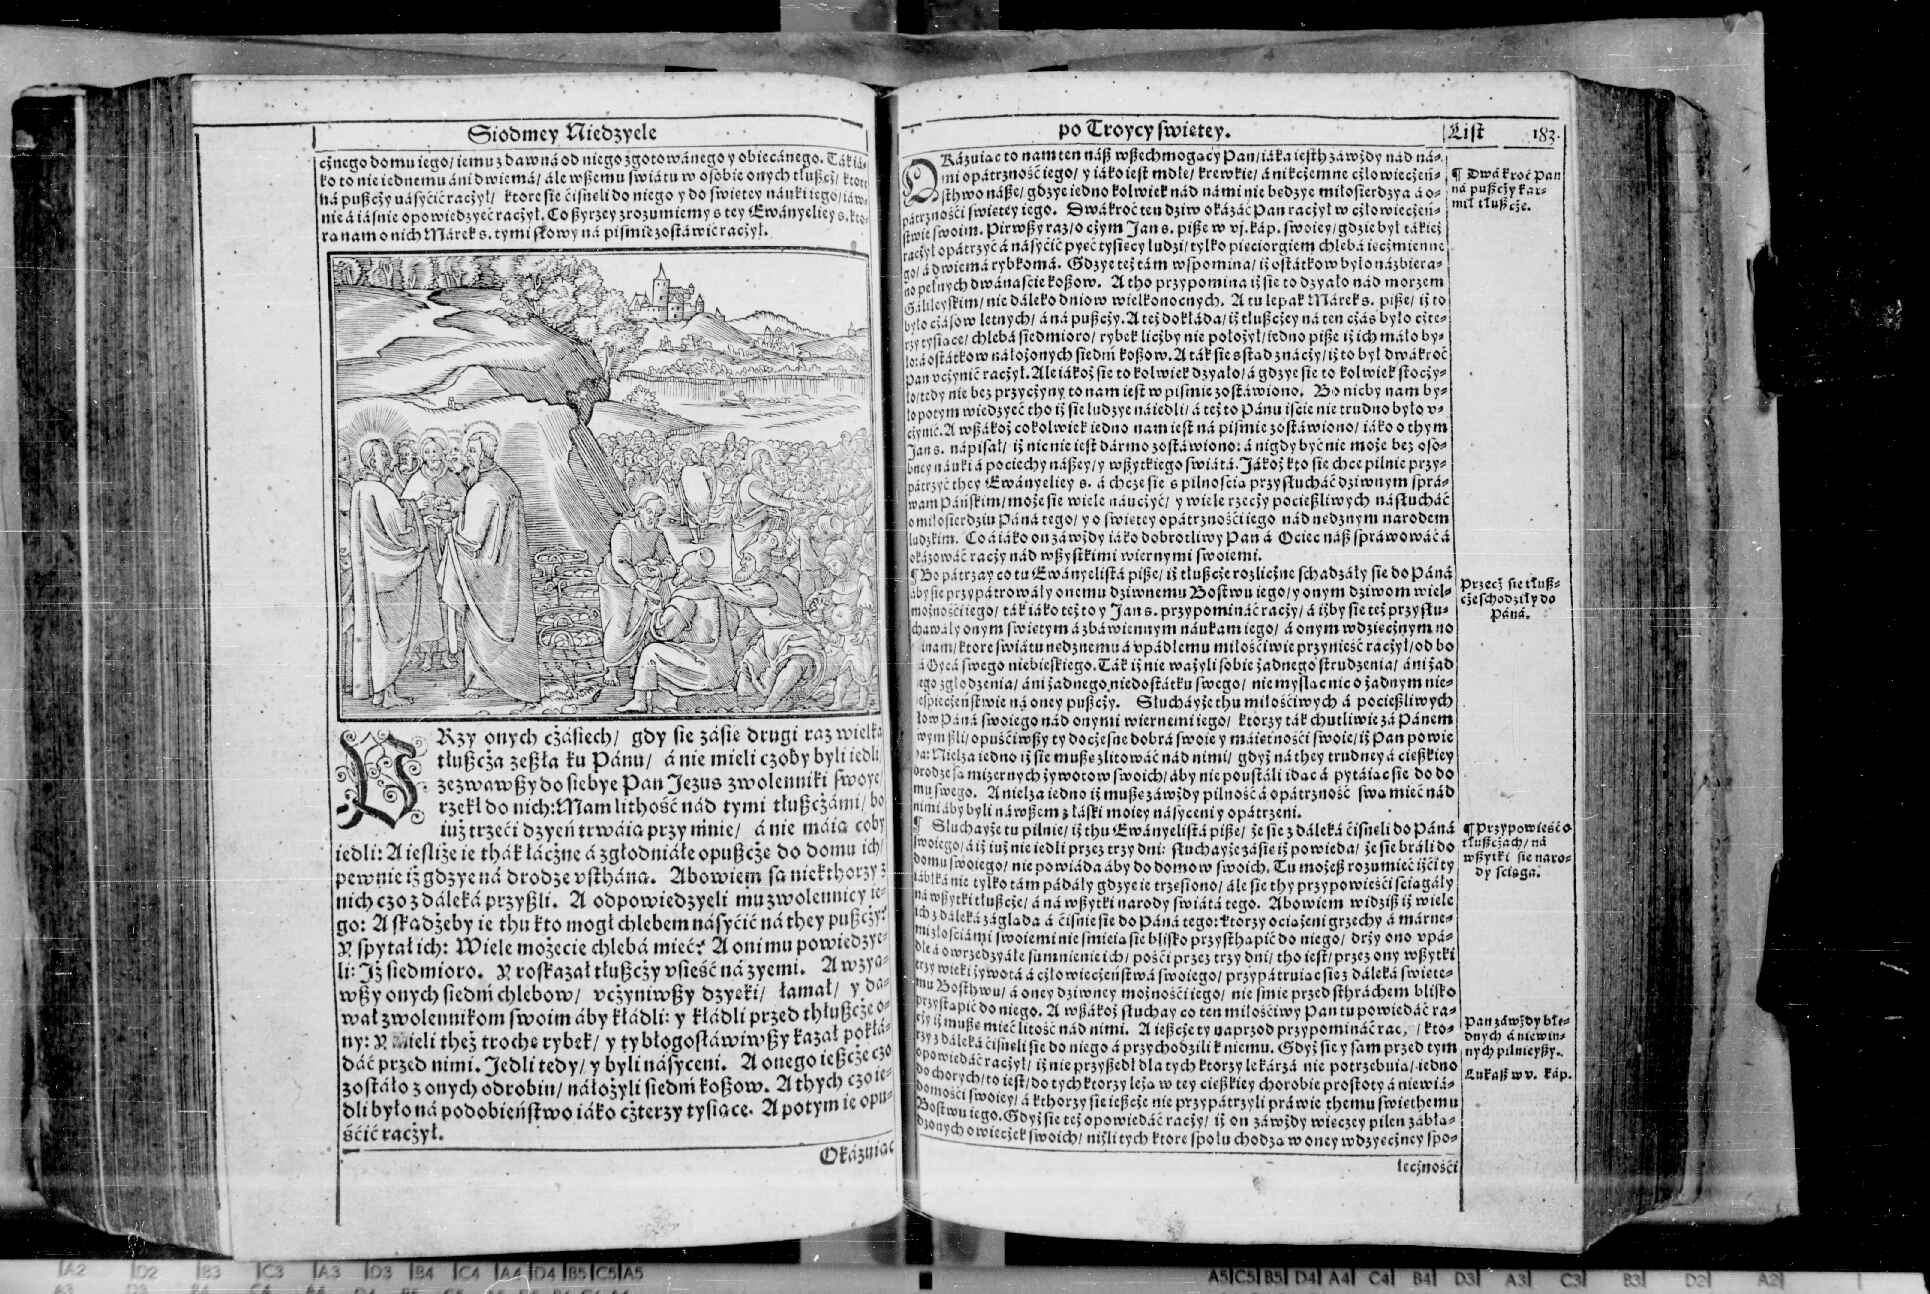 Siodmey Niedzyele
cżnego domu iego/ iemu z dawná od niego zgotowánego y obiecánego. Ták iá-
ko to nie iednemu áni dwiemá/ ále wßemu swiátu w osobie onych tłußcż/ ktore
ná pußcży násyćić racżył/ ktore sie ćisneli do niego y do swietey náuki iego/ iáw-
nie á iásnie opowiedzyeć racżył. Co ßyrzey zrozumiemy s tey Ewányeliey s. kto-
ra nam o nich Márek s. tymi słowy ná piśmie zostáwić racżył.
PRzy onych cżásiech/ gdy sie zásie drugi raz wielka
tłußcża zeßłá ku Pánu/ á nie mieli czoby byli iedli/
zezwawßy do siebye Pan Jezus zwolenniki swoye/
rzekł do nich: Mam lithość nád tymi tłußcżámi/ bo
iuż trzeći dzyeń trwáią przy mnie/ á nie máią coby
iedli: A iesliże ie thák łácżne á zgłodniáłe opußcże do domu ich/
pewnie iż gdzye ná drodze vstháną. Abowiem są niekthorzy z
nich czo z dáleká przyßli. A odpowiedzyeli mu zwolennicy ie-
go: A skądżeby ie thu kto mogł chlebem násyćić ná they pußcży?
Y spytał ich: Wiele możecie chlebá mieć? A oni mu powiedzye-
li: Iż siedmioro. Y roskazał tłußcży vsieść ná zyemi. A wzyą-
wßy onych siedḿ chlebow/ vcżyniwßy dzyęki/ łamał/ y dá-
wał zwolennikom swoim áby kłádli: y kłádli przed thłußcże o-
ny: Y mieli theż trochę rybek/ y ty błogosłáwiwßy kazał pokłá-
dáć przed nimi. Jedli tedy/ y byli násyceni. A onego ießcże czo
zostáło z onych odrobin/ náłożyli siedḿ koßow. A thych czo ie-
dli było ná podobieństwo iáko cżterzy tysiące. A potym ie opu-
śćić racżył.
Okázuiąc
po Troycy swietey.
List 183.
OKázuiąc to nam ten náß wßechmogący Pan/ iáka iesth záwżdy nád ná-
mi opátrzność iego/ y iáko iest mdłe/ krewkie/ á nikcżemne cżłowiecżeń-
sthwo náße/ gdzye iedno kolwiek nád námi nie będzye miłosierdzya á o-
pátrznośći swiętey iego. Dwákroć ten dziw okázáć Pan racżył w cżłowiecżeń-
stwie swoim. Pirwßy raz/ o cżym Jan s. piße w vj. káp. swoiey/ gdzie był tákież
racżył opátrzyć á násyćić pyęć tysięcy ludzi/ tylko pięciorgiem chlebá ięcżmienne-
go/ á dwiemá rybkomá. Gdzye też tám wspomina/ iż ostátkow było názbierá-
no pełnych dwánaście koßow. A tho przypomina iż sie to dzyało nád morzem
Gálileyskim/ nie dáleko dniow wielkonocnych. A tu lepák Márek s. piße/ iż to
było cżásow letnych/ á ná pußcży. A też dokłáda/ iż tłußcżey ná ten cżás było cżte-
rzy tysiące/ chlebá siedmioro/ rybek licżby nie położył/ iedno piße iż ich máło by-
ło: á ostátkow náłożonych siedḿ koßow. A ták sie s stąd znácży/ iż to był dwákroć
Pan vcżynić racżył. Ale iákoż sie to kolwiek dzyało/ á gdzye sie to kolwiek stocży-
ło/ tedy nie bez przycżyny to nam iest w piśmie zostáwiono. Bo nicby nam by-
ło potym wiedzyeć tho iż sie ludzye náiedli/ á też to Pánu iście nie trudno było v-
cżynić. A wßákoż cokolwiek iedno nam iest ná piśmie zostáwiono/ iáko o thym
Jan s. nápisał/ iż nic nie iest dármo zostáwiono: á nigdy być nie może bez oso-
bney náuki á pociechy náßey/ y wßytkiego swiátá. Jákoż kto sie chce pilnie przy-
pátrzyć they Ewányeliey s. á chce sie s pilnością przysłucháć dziwnym sprá-
wam Páńskim/ może sie wiele náucżyć/ y wiele rzecży pocießliwych násłucháć
o miłosierdziu Páná tego/ y o swiętey opátrznośći iego nád nędznym narodem
ludzkim. Co á iáko on záwżdy iáko dobrotliwy Pan á Ociec náß spráwowáć á
okázowáć racży nád wßystkimi wiernymi swoiemi.
¶ Bo pátrzay co tu Ewányelistá piße/ iż tłußcże rozlicżne schadzáły sie do Páná
áby sie przypátrowáły onemu dziwnemu Bostwu iego/ y onym dziwom wiel-
możnośći iego/ ták iáko też to y Jan s. przypomináć racży/ á iżby sie też przysłu-
chawáły onym swiętym á zbáwiennym náukam iego/ á onym wdzięcżnym no
inam/ ktore swiátu nędznemu á vpádłemu miłośćiwie przynieść racżył/ od bo
á Oycá swego niebieskiego. Ták iż nie ważyli sobie żadnego strudzenia/ áni żad
ego zgłodzenia/ áni żadnego niedostátku swego/ nie myśląc nic o żadnym nie-
eśpiecżeństwie ná oney pußcży. Słuchayże thu miłośćiwych á pocießliwych
łow Páná swoiego nád onymi wiernemi iego/ ktorzy ták chutliwie zá Pánem
wym ßli/ opuśćiwßy ty docżesne dobrá swoie y máiętnośći swoie/ iż Pan powie
da: Nielza iedno iż sie muße zlitowáć nád nimi/ gdyż ná they trudney á cięßkiey
drodze są mizernych żywotow swoich/ áby nie poustáli idąc á pytáiąc sie do do
mu swego. A nielza iedno iż muße záwżdy pilność á opátrzność swą mieć nád
nimi áby byli náwßem z łáski moiey násyceni y opátrzeni.
¶ Słuchayże tu pilnie/ iż thu Ewányelistá piße/ że sie z dáleká ćisneli do Páná
swoiego/ á iż iuż nie iedli przez trzy dni: słuchayże zásie iż powieda/ że sie bráli do
domu swoiego/ nie powiáda áby do domow swoich. Tu możeß rozumieć iżći ty
iábłká nie tylko tám pádáły gdzye ie trzęsiono/ ále sie thy przypowieśći śćiągáły
ná wßytki tłußcże/ á ná wßytki narody swiátá tego. Abowiem widziß iż wiele
ich z dáleká zágląda á ćiśnie sie do Páná tego: ktorzy ociążeni grzechy á márne-
mi złościámi swoiemi nie śmieią sie blisko przysthąpić do niego/ drży ono vpá-
dłe á owrzedzyáłe sumnienie ich/ pośći przez trzy dni/ tho iest/ przez ony wßytki
trzy wieki żywotá á cżłowiecżeństwá swoiego/ przypátruiąc sie z dáleká swięte-
mu Bosthwu/ á oney dziwney możnośći iego/ nie śmie przed sthráchem blisko
przystąpić do niego. A wßákoż słuchay co ten miłośćiwy Pan tu powiedáć ra-
cży iż muße mieć litość nád nimi. A ießcże ty naprzod przypomináć rac, / kto-
rzy z dáleká ćisneli sie do niego á przychodzili k niemu. Gdyż sie y sam przed tym
opowiedáć racżył/ iż nie przyßedł dla tych ktorzy lekárzá nie potrzebuią/ iedno
do chorych/ to iest/ do tych ktorzy leżą w tey cięßkiey chorobie prostoty á niewiá-
domośći swoiey/ á kthorzy sie ießcże nie przypátrzyli práwie themu swiethemu
Bostwu iego. Gdyż sie też opowiedáć racży/ iż on záwżdy więcżey pilen zábłą-
dzonych owiecżek swoich/ niżli tych ktore społu chodzą w oney wdzyęcżney spo-
łecżnośći
¶ Dwá kroć Pan
ná pußcży kar-
mił tłußcże.
Przecż sie tłuß-
cże schodziły do
Páná.
¶ Przypowieść o
tłußcżách/ ná
wßytki sie naro-
dy śćiąga.
Pan záwżdy błę-
dnych á niewin-
nych pilnieyßy.
Łukáß w v. káp.